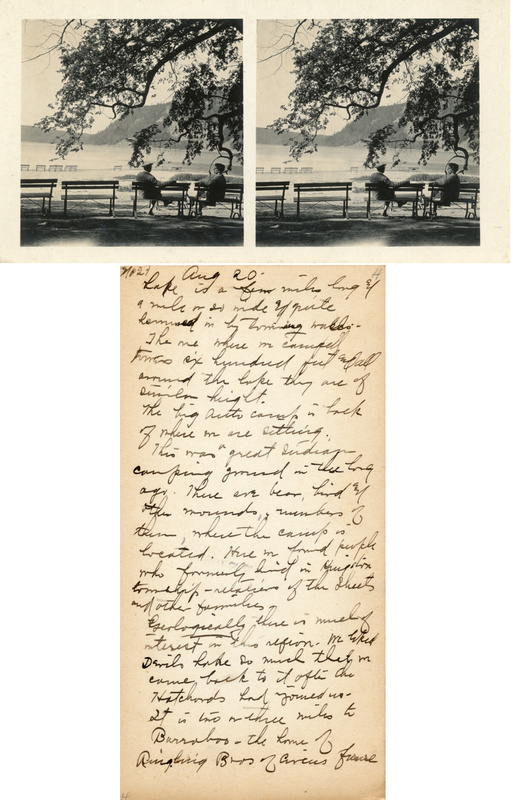 No 21 Aug 20. 4
Lake is a few miles long &
a mile or so wide & quite
hemmed in by towering walls.
The one where we camped
towers six hundred feet & all
around the lake they are of
similar height.
The big auto camp is back
of where we are sitting.
This was a great Indian
camping ground in the long
ago. There are bear, bird &
other mounds, numbers of
them, where the camp is
located. Here we found people
who formerly lived in
township - relatives of the Sheets
and other families.
Geologically there is much of
interest in this region. We liked
Devils Lake so much that we
came back to it after the
had joined us.
It is two or three miles to
Barraboo - the home of
Ringling Bros of Circus fame